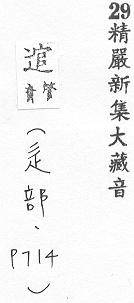 29精嚴新集大藏音
逭
管音
(辵部、P714)